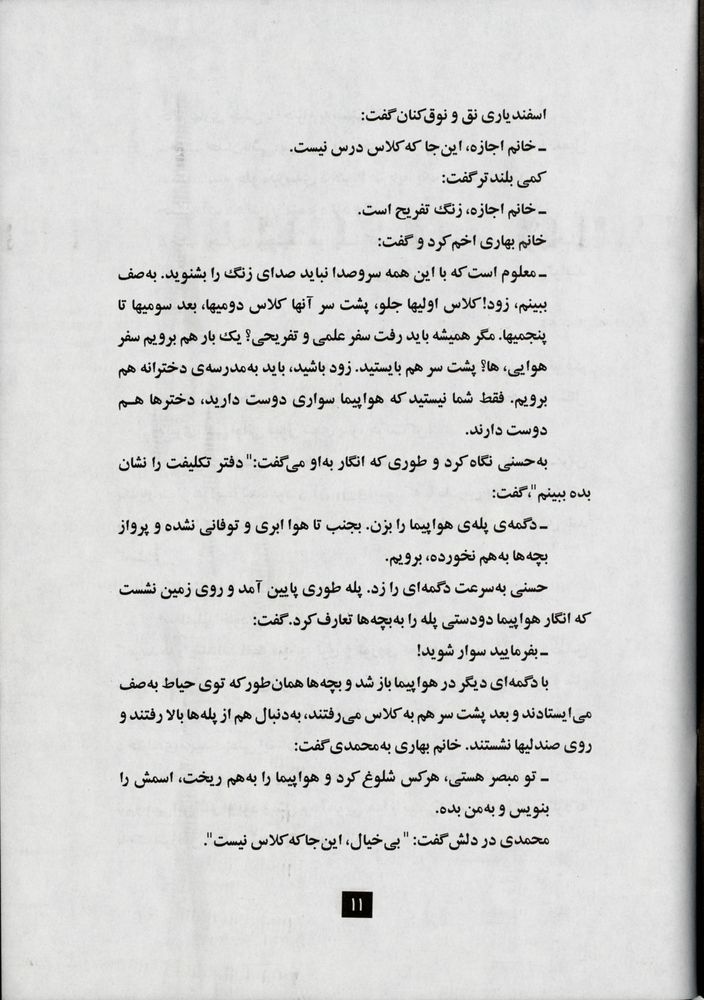 اسفندیاری نق و نوق‌کنان گفت:
ـ خانم اجازه، این‌جا که کلاس درس نیست.
کمی بلندتر گفت:
ـ خانم اجازه، زنگ تفریح است.
خانم بهاری اخم کرد و گفت:
ـ معلوم است که با این همه سروصدا نباید صدای زنگ را بشنوید. به‌صف
ببینم، زود! کلاس اولیها جلو، پشت سر آنها کلاس دومیها، بعد سومیها تا
پنجمیها. مگر همیشه باید رفت سفر علمی و تفریحی؟ یک بار هم برویم سفر
هوایی، ها؟ پشت سر هم بایستید. زود باشید، باید به‌مدرسه‌ی دخترانه هم
برویم. فقط شما نیستید که هواپیما سواری دوست دارید، دخترها هـم
دوست دارند.
به‌حسنی نگاه کرد و طوری که انگار به‌او می‌گفت:" دفتر تکلیفت را نشان
بده ببینم"، گفت:
ـ دگمه‌ی پله‌ی هواپیما را بزن. بجنب تا هوا ابری و توفانی نشده و پرواز
بچه‌ها به‌هم نخورده، برویم.
حسنی به‌سرعت دگمه‌ای را زد. پله طوری پایین آمد و روی زمین نشست
که انگار هواپیما دودستی پله را به‌بچه‌ها تعارف کرد. گفت:
ـ بفرمایید سوار شوید!
با دگمه‌ای دیگر در هواپیما باز شد و بچه‌ها همان‌طور که توی حیاط به‌صف
می‌ایستادند و بعد پشت سر هم به کلاس می‌رفتند، به‌دنبال هم از پله‌ها بالا رفتند و
روی صندلیها نشستند. خانم بهاری به‌محمدی گفت:
ـ تو مبصر هستی، هرکس شلوغ کرد و هواپیما را به‌هم ریخت، اسمش را
بنویس و به‌من بده.
محمدی در دلش گفت: " بی‌خیال، این‌جا که کلاس نیست".
۱۱